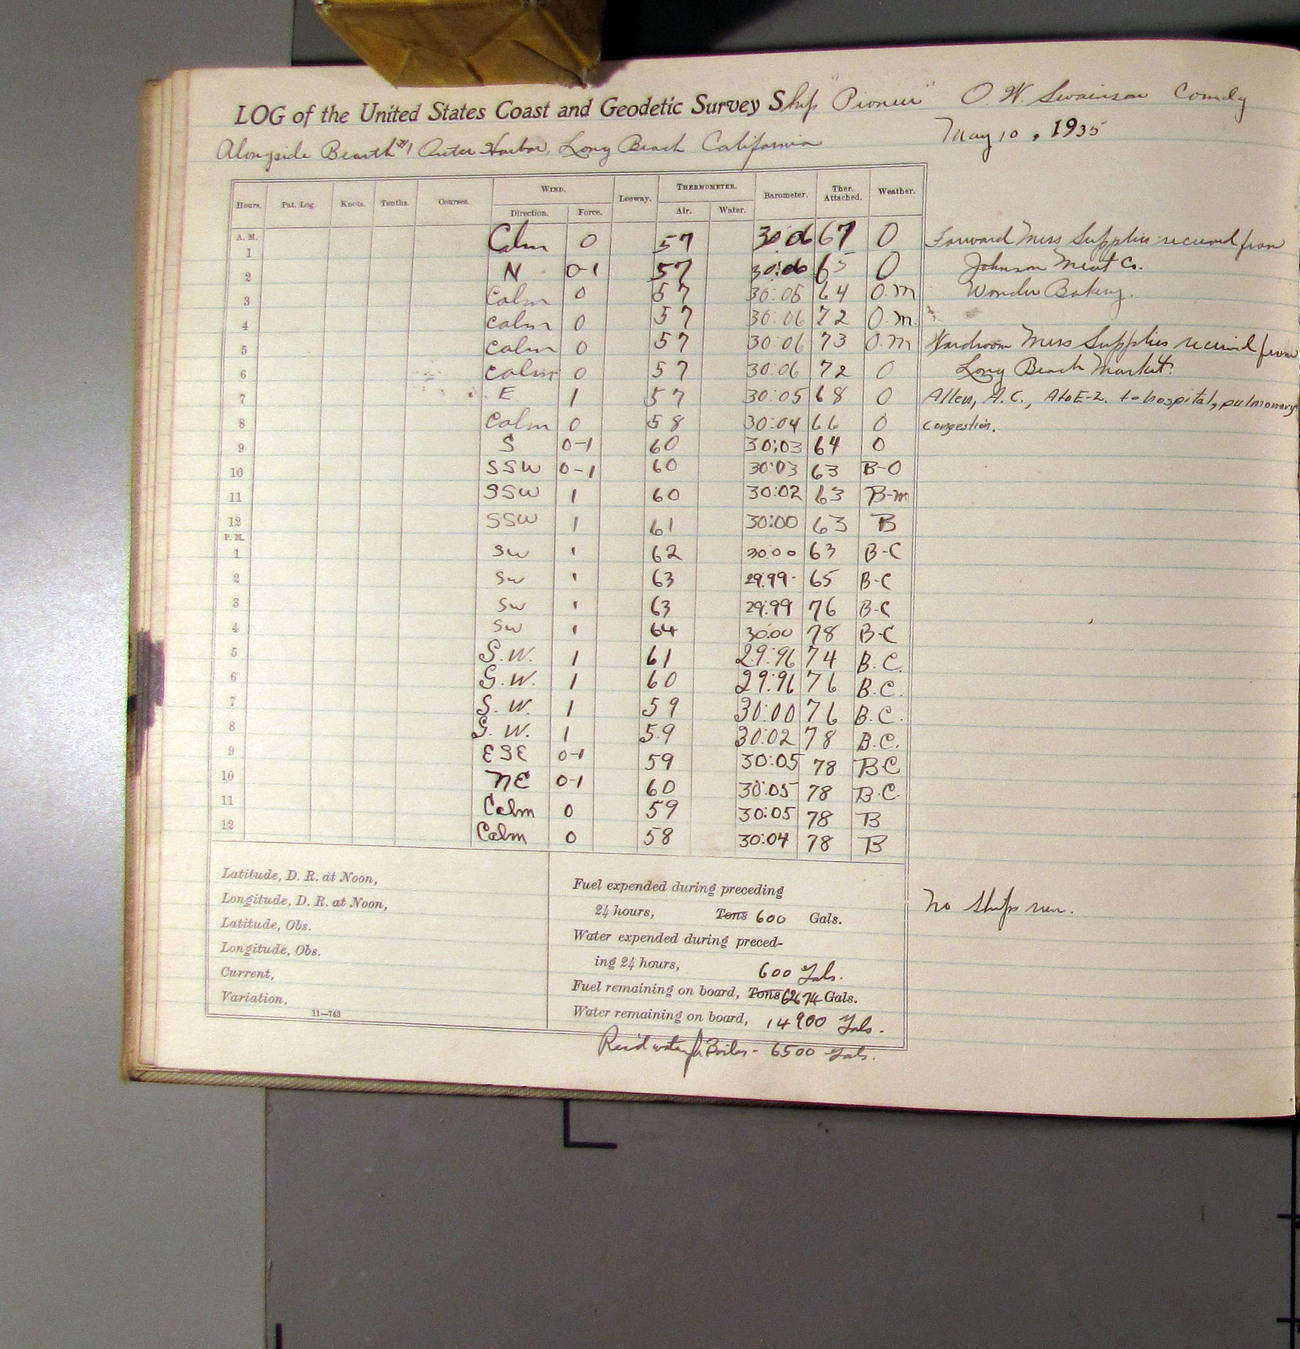 LOG of the United States Coast and Geodetic Survey Ship "Pioneer" O. W. Swainson Comdg
Alongside Bearth #1 Outer Harbor, Long Beach California May 10, 1935
Hours. Pat. Log. Knots. Tenths. Courses. WIND. Leeway. THERMOMETER. Barometer. Ther. Attached. Weather.
Direction. Force. Air. Water.
A. M.
1 Calm 0 57 30:06 67 0 Forward Mess Supplies received from
2 N 0-1 57 30:06 65 0 Johnson Meat Co.
3 Calm 0 57 30:05 64 O.m Wonder Bakery.
4 Calm 0 57 30:06 72 O.m.
5 Calm 0 57 30:06 73 O.m Wardroom Mess Supplies received from
6 Calm 0 57 30:06 72 0 Long Beach Market.
7 E 1 57 30:05 68 0 Allen, A.C., AtoE-2. to hospital, pulmonary
8 Calm 0 58 30:04 66 0 congestion.
9 S 0-1 60 30:03 64 0
10 SSW 0-1 60 30:03 63 B-O
11 SSW 1 60 30:02 63 B-m
12 SSW 1 61 30:00 63 B
P. M.
1 SW 1 62 30:00 63 B-C
2 SW 1 63 29.99 65 B-C
3 SW 1 63 29:99 76 B-C
4 SW 1 64 30:00 78 B-C
5 S.W. 1 61 29:96 74 B.C.
6 S.W. 1 60 29:96 76 B.C.
7 S.W. 1 59 30:00 76 B.C.
8 S.W. 1 59 30:02 78 B.C.
9 ESE 0-1 59 30:05 78 BC
10 NE 0-1 60 30:05 78 B.C.
11 Calm 0 59 30:05 78 B
12 Calm 0 58 30:04 78 B
Latitude, D. R. at Noon,
Longitude, D. R. at Noon,
Latitude, Obs.
Longitude, Obs.
Current,
Variation,
11—743
Fuel expended during preceding
24 hours, Tons 600 Gals.
Water expended during preced-
ing 24 hours, 600 Gals.
Fuel remaining on board, Tons 6674 Gals.
Water remaining on board, 14900 Gals.
Rec'd water for Boiler - 6500 Gals.
No Ships run.